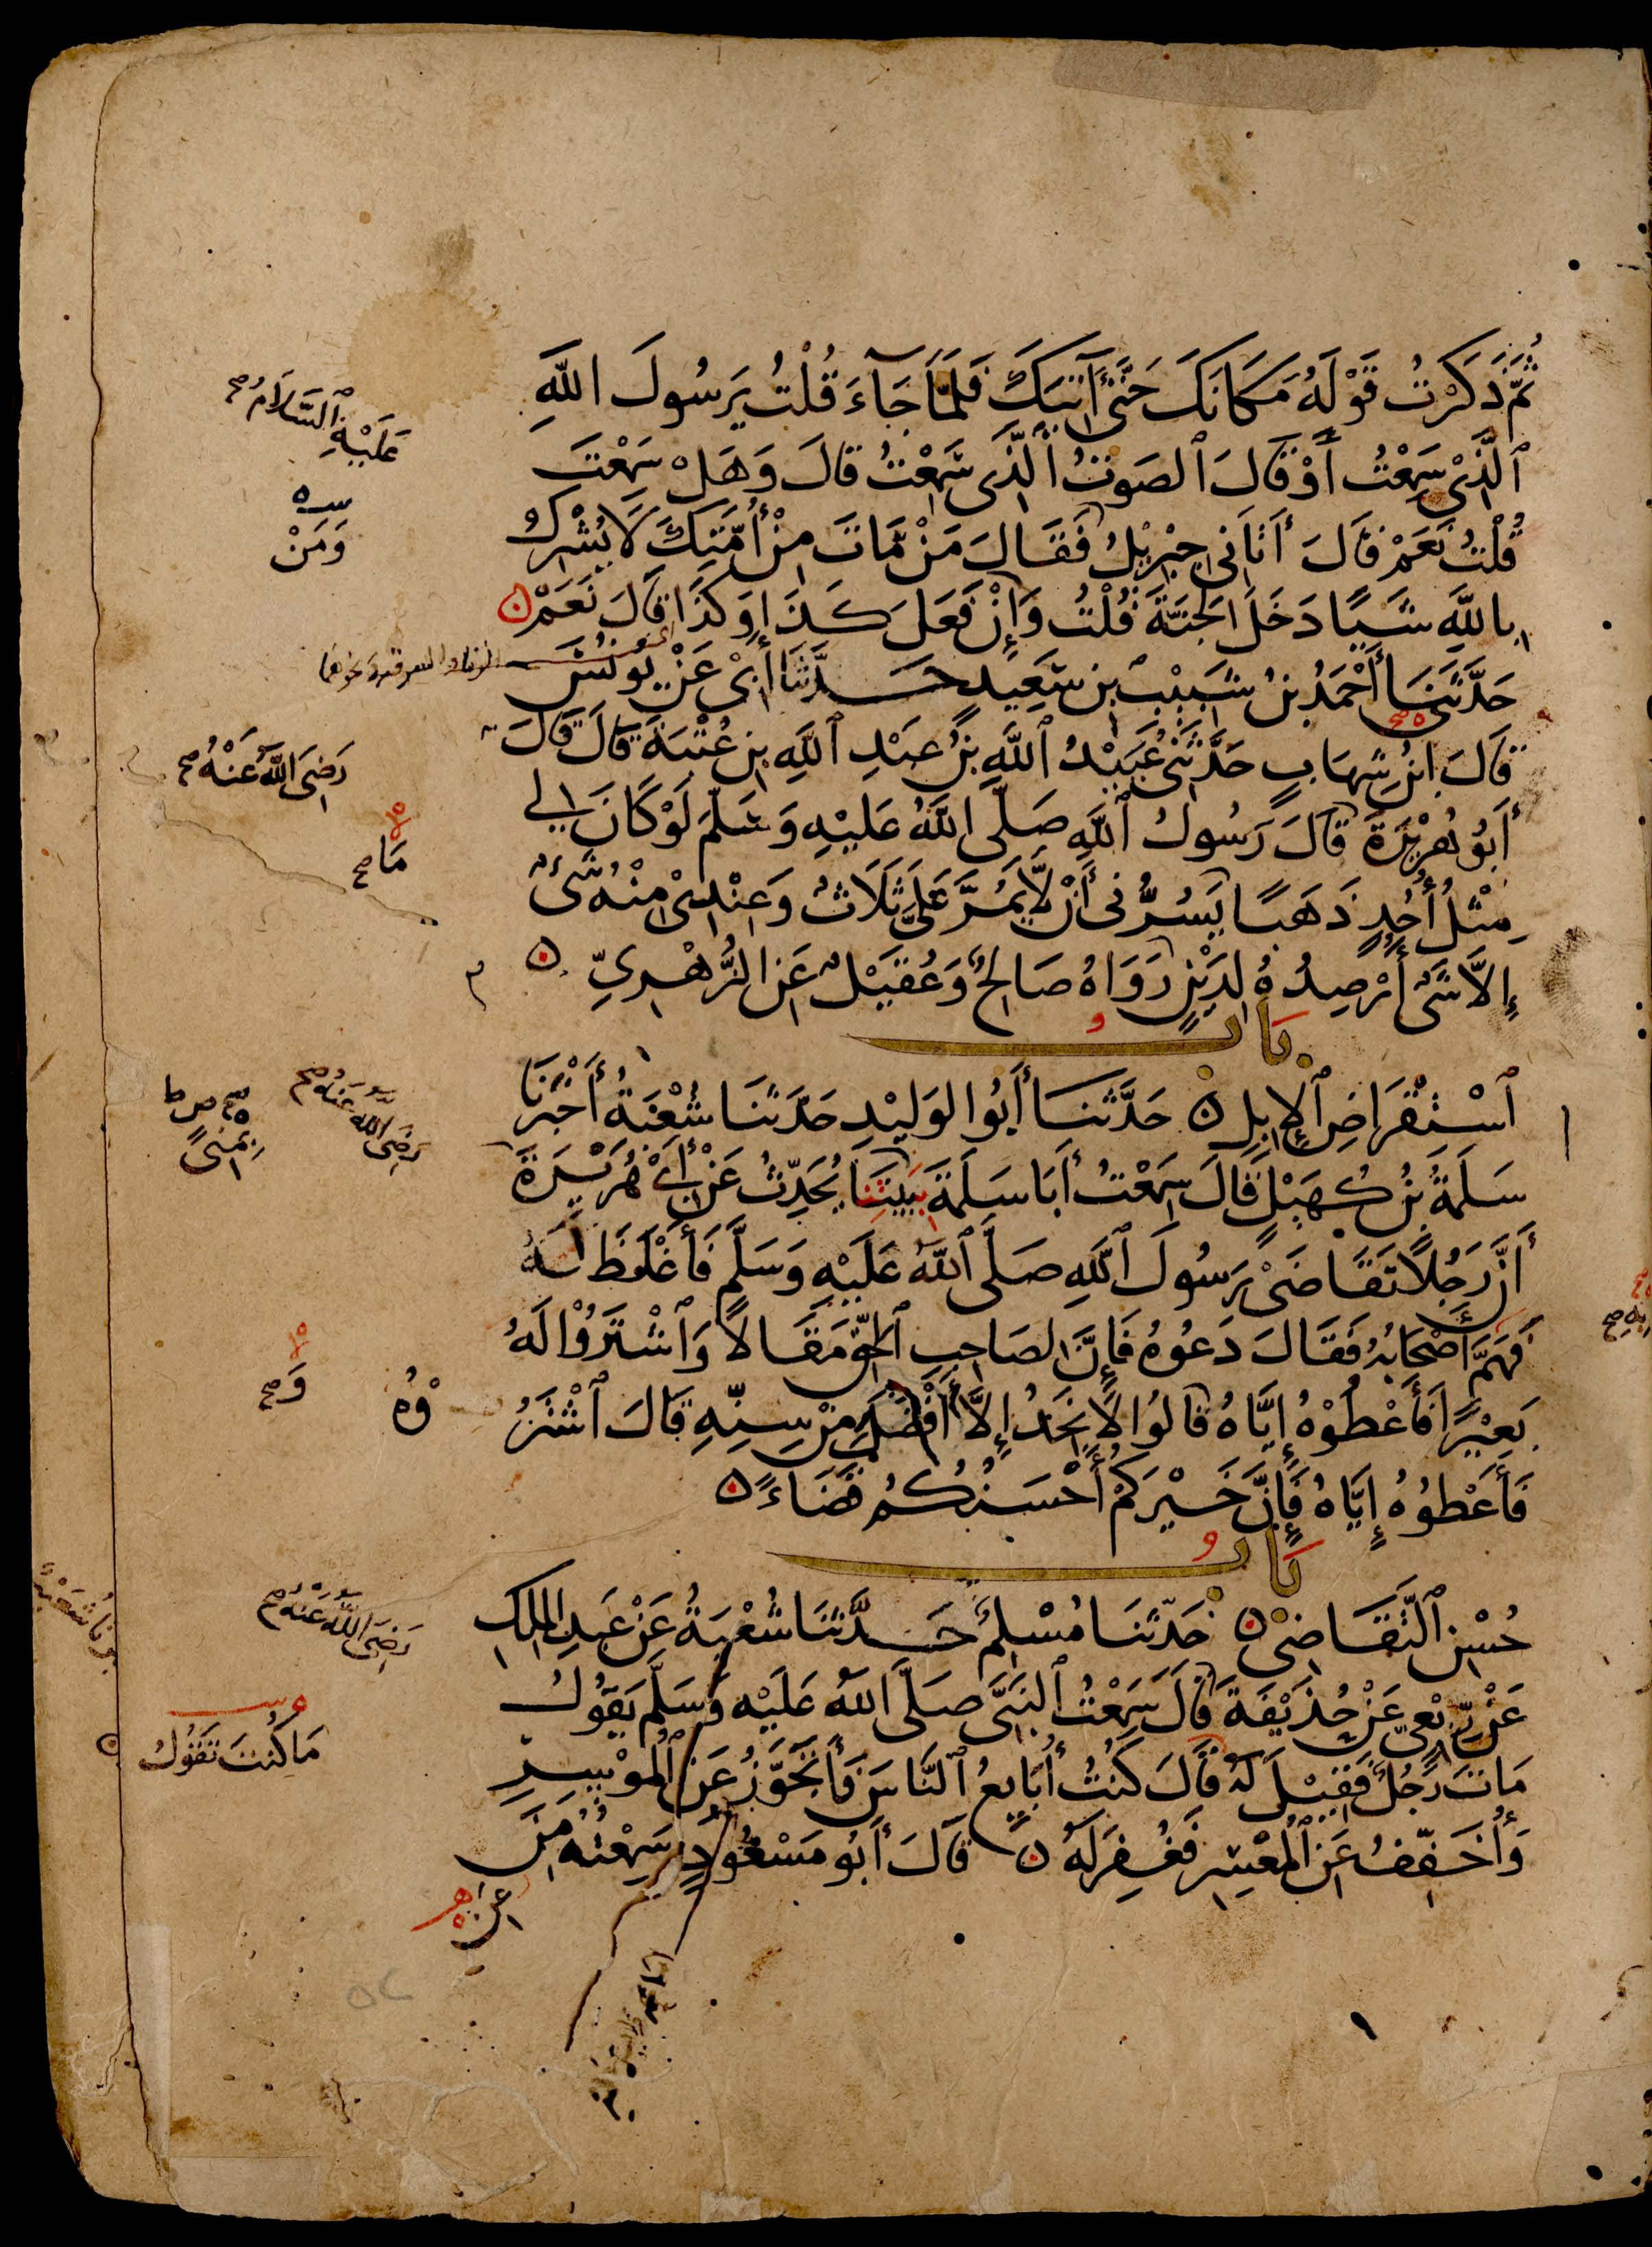 ثُمَّ ذَكَرْتُ قَوْلَهُ مَكَانَكَ حَتَّى آتِيَكَ فَلَمَّا جَآءَ قُلْتُ يَرَسُولَ اللَّهِ
عَلَيْهِ السَّلَامُ صح
ٱلَّذِي سَمِعْتُ أَوْ قَالَ ٱلصَوْتُ ٱلَّذِي سَمِعْتُ قَالَ وَهَلْ سَمِعْتَ
قُلْتُ نَعَمْ قَالَ أَتَانِي جِبْرِيْلُ فَقَالَ مَنْ مَّاتَ مِنْ أُمَّتِكَ لَا يُشْرِكُ
وَمَنْ
بِاللَّهِ شَيًا دَخَلَ الجَنَّةَ قُلْتُ وَإِنْ فَعَلَ كَذَا وَكَذَا قَالَ نَعَمْ
حَدَّثَنَا أَحْمَدُ بْنُ شَبِيْبِ بْنِ سَعِيدٍ حَدَّثَنَا أَبِيْ عَنْ يُونُسَ
قَالَ ابْنُ شِهَابٍ حَدَّثَنِي عُبَيْدُ ٱللَّهِ بْنُ عَبْدِ ٱللَّهِ بْنِ عُتْبَةَ قَالَ قَالَ
رَضِيَ اللَّهُ عَنْهُ صح
أَبُو هُرَيْرَةَ قَالَ رَسُولُ ٱللَّهِ صَلَّى اللَّهُ عَلَيْهِ وَسَلَّمَ لَوْ كَانَ لِي
مَا صح
مِثْلُ أُحُدٍ ذَهَبًا يَسُرُّنِي أَنْ لَّا يَمُرَّ عَلَيَّ ثَلَاثٌ وَعِنْدِيْ مِنْهُ شَيْءٌ
إِلَّا شَيْءٌ أُرْصِدُهُ لِدَيْنٍ رَوَاهُ صَالِحٌ وَعُقَيْلٌ عَنِ الزُّهْرِيِّ
بَابُ
ٱسْتِقْرَاضِ ٱلْإِبِلِ حَدَّثَنَا أَبُو الوَلِيْدِ حَدَّثَنَا شُعْبَةُ أَخْبَرَنَا
رَضِيَ اللَّهُ عَنْهُ صح
بِمِنًى
سَلَمَةُ بْنُ كُهَيْلٍ قَالَ سَمِعْتُ أَبَا سَلَمَةَ بِبَيْتِنَا يُحَدِّثُ عَنْ أَبِي هُرَيْرَةَ
أَنَّ رَجُلًا تَقَاضَىْ رَسُولَ ٱللَّهِ صَلَّى ٱللَّهُ عَلَيْهِ وَسَلَّمَ فَأَغْلَظَ لَهُ
فَهَمَّ أَصْحَابُهُ فَقَالَ دَعُوهُ فَإِنَّ لِصَاحِبِ ٱلْحَقِّ مَقَالًا وَٱشْتَرُوْا لَهُ
بَعِيْرًا فَأَعْطُوْهُ إِيَّاهُ قَالُوا لَا نَجِدُ إِلَّا أَفْضَلَ مِنْ سِنِّهِ قَالَ ٱشْتَرُ
وْهُ
وَ صح
فَأَعْطُوُهُ إِيَّاهُ فَإِنَّ خَيْرَكُمْ أَحْسَنُكُمْ قَضَاءً
بَابُ
حُسْنِ ٱلتَّقَاضِيْ حَدَّثَنَا مُسْلِمٌ حَدَّثَنَا شُعْبَةُ عَنْ عَبْدِ المَلِكِ
رَضِيَ اللَّهُ عَنْهُ صح
عَنْ رِبْعِيٍّ عَنْ حُذَيْفَةَ قَالَ سَمِعْتُ ٱلنَّبِيَّ صَلَّى اللَّهُ عَلَيْهِ وَسَلَّمَ يَقُولُ
مَاتَ رَجُلٌ فَقِيْلَ لَهُ قَالَ كُنْتُ أُبَايِعُ ٱلنَّاسَ فَأَتَجَوَّزُ عَنِ ٱلْمُوْسِرِ
مَا كُنْتَ تَقُولُ
وَأُخَفِّفُ عَنِ ٱلْمُعْسِرِ فَغُفِرَ لَهُ قَالَ أَبُو مَسْعُودٍ سَمِعْتُهُ مِنَ